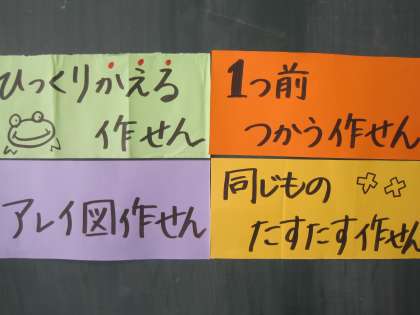 ひっくりかえる
作せん
1つ前
つかう作せん
アレイ図作せん
同じもの
たすたす作せん